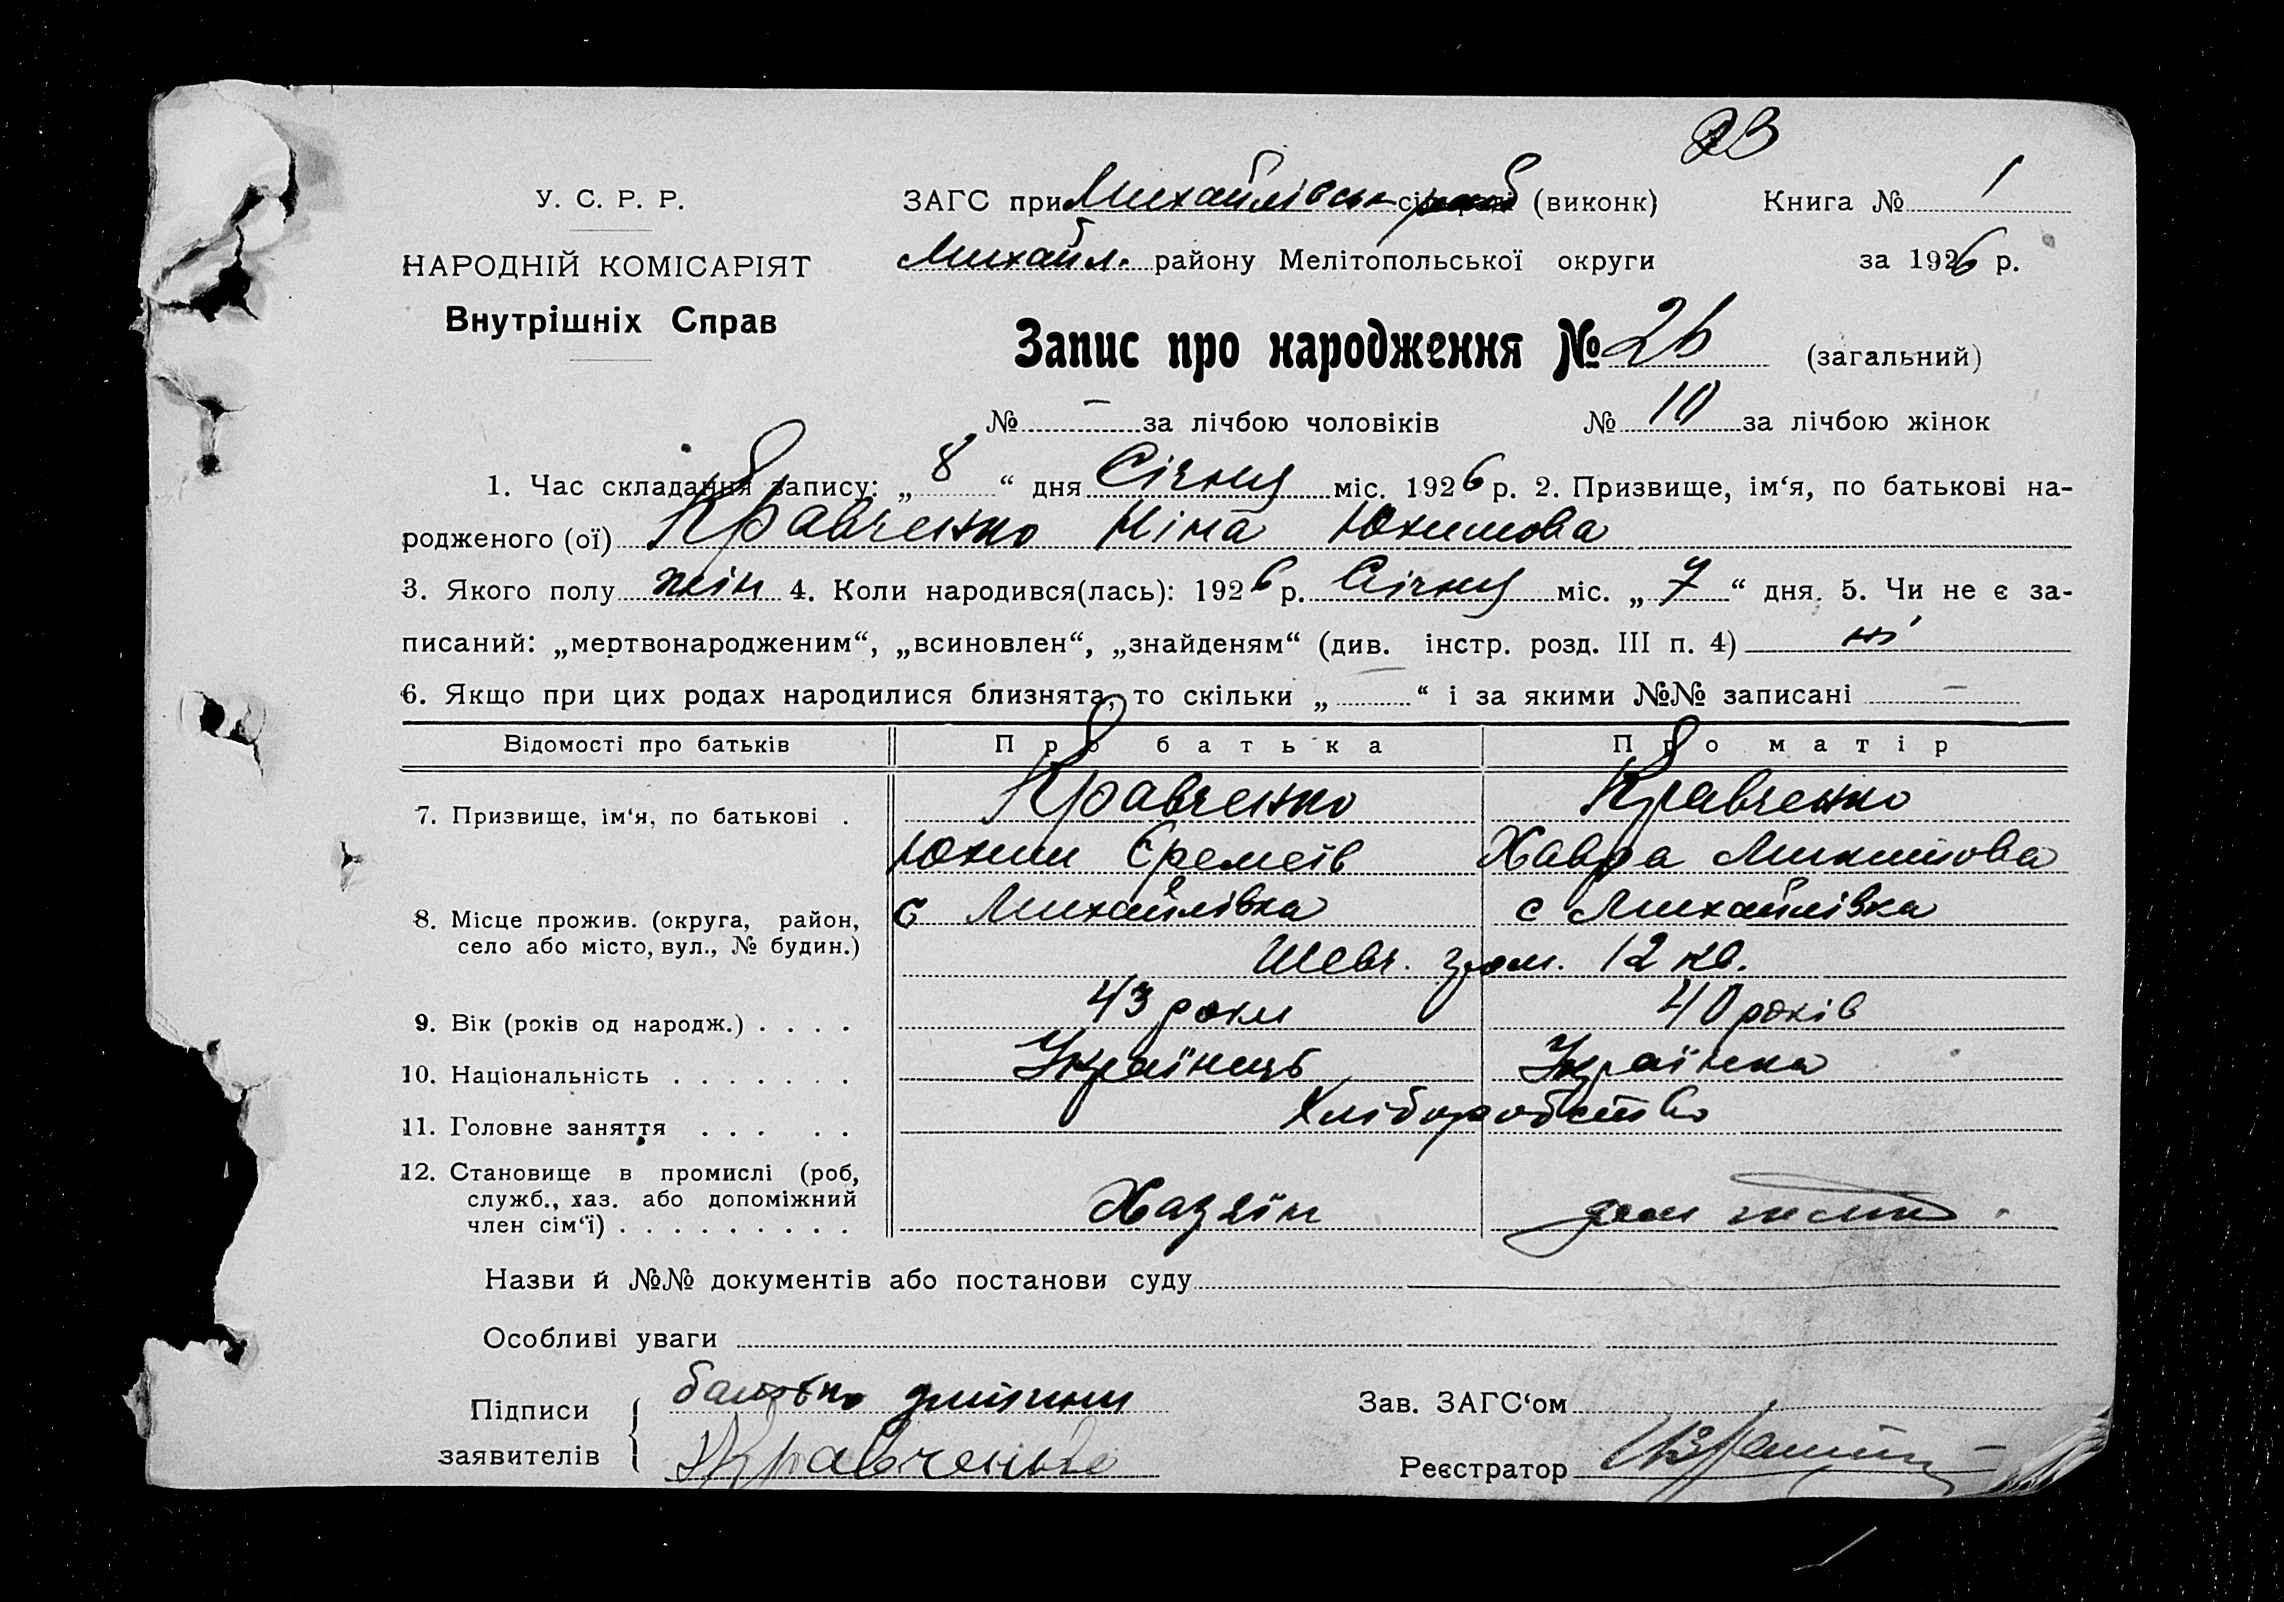 23
У. С. Р. Р.
ЗАГС при Михайлівськ (виконк) Книга № 1
НАРОДНІЙ КОМІСАРІЯТ
Михайл. району Мелітопольської округи за 1926 р.
Внутрішніх Справ
Запис про народження № 26 (загальний)
№ - за лічбою чоловіків № 10 за лічбою жінок
1. Час складання запису: „ 8 “ дня Січня міс. 1926 р. 2. Призвище, ім‘я, по батькові на-
родженого (ої) Кравченко Ніна Юхимова
3. Якого полу жін 4. Коли народився(лась): 1926 р. Січня міс. „ 7 “ дня. 5. Чи не є за-
писаний: „мертвонародженим“, „всиновлен“, „знайденям“ (див. інстр. розд. III п. 4) ні
6. Якщо при цих родах народилися близнята, то скільки „ — “ і за якими №№ записані —
Відомості про батьків Про батька Про матір
7. Призвище, ім‘я, по батькові . Кравченко Кравченко
Юхим Єремеїв Хавра Микитова
8. Місце прожив. (округа, район, с Михайлівка с Михайлівка
село або місто, вул., № будин.) Шевч. гром. 12 кв.
9. Вік (років од народж.) . . . . 43 роки 40 років
10. Національність . . . . . . . Українець Українка
11. Головне заняття . . . . . Хліборобство
12. Становище в промислі (роб,
служб., хаз. або допоміжний
член сім‘ї) . . . . . . . . . Хазяїн дом
Назви й №№ документів або постанови суду
Особливі уваги
Підписи заявителів { батько дитини Зав. ЗАГС‘ом
Кравченько Реєстратор